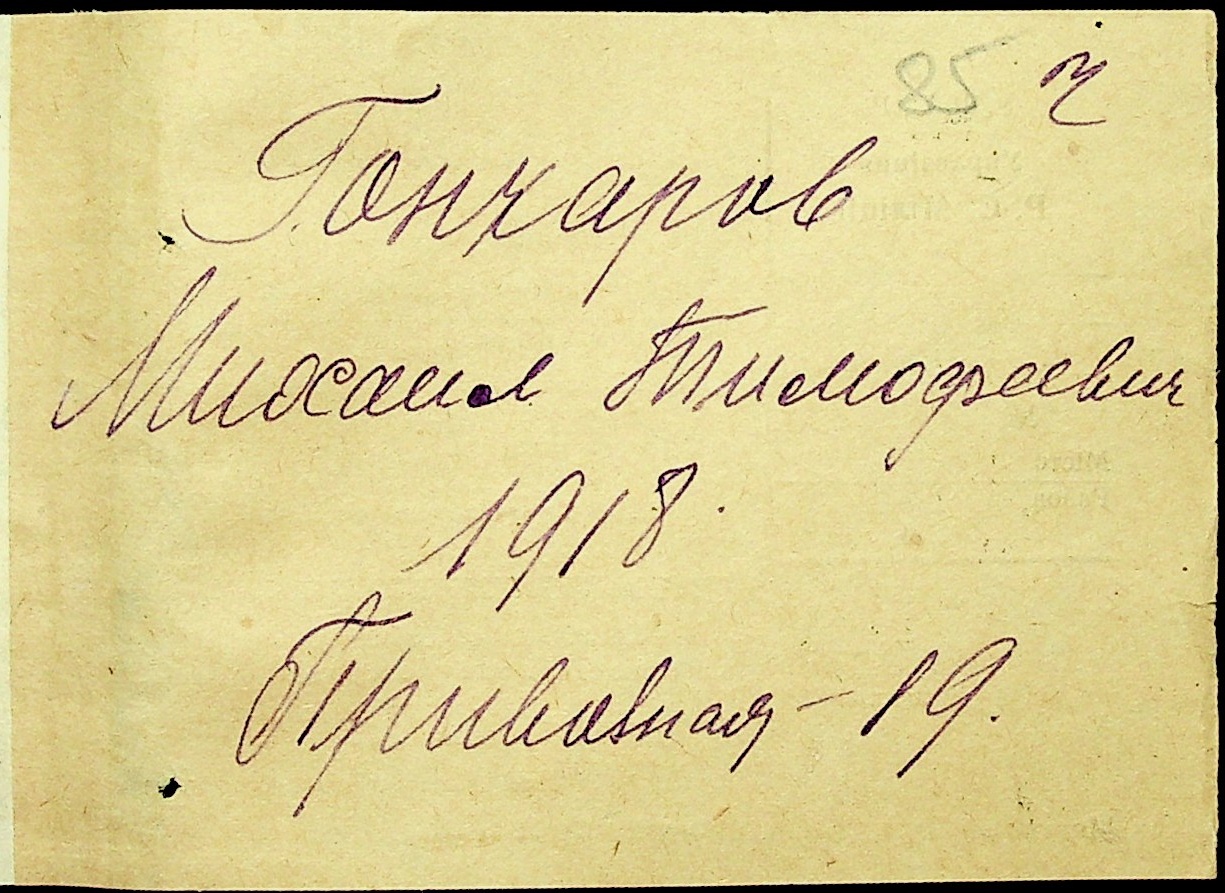 85 г
Гончаров
Михаил Тимофеевич
1918.
Привозная - 19.